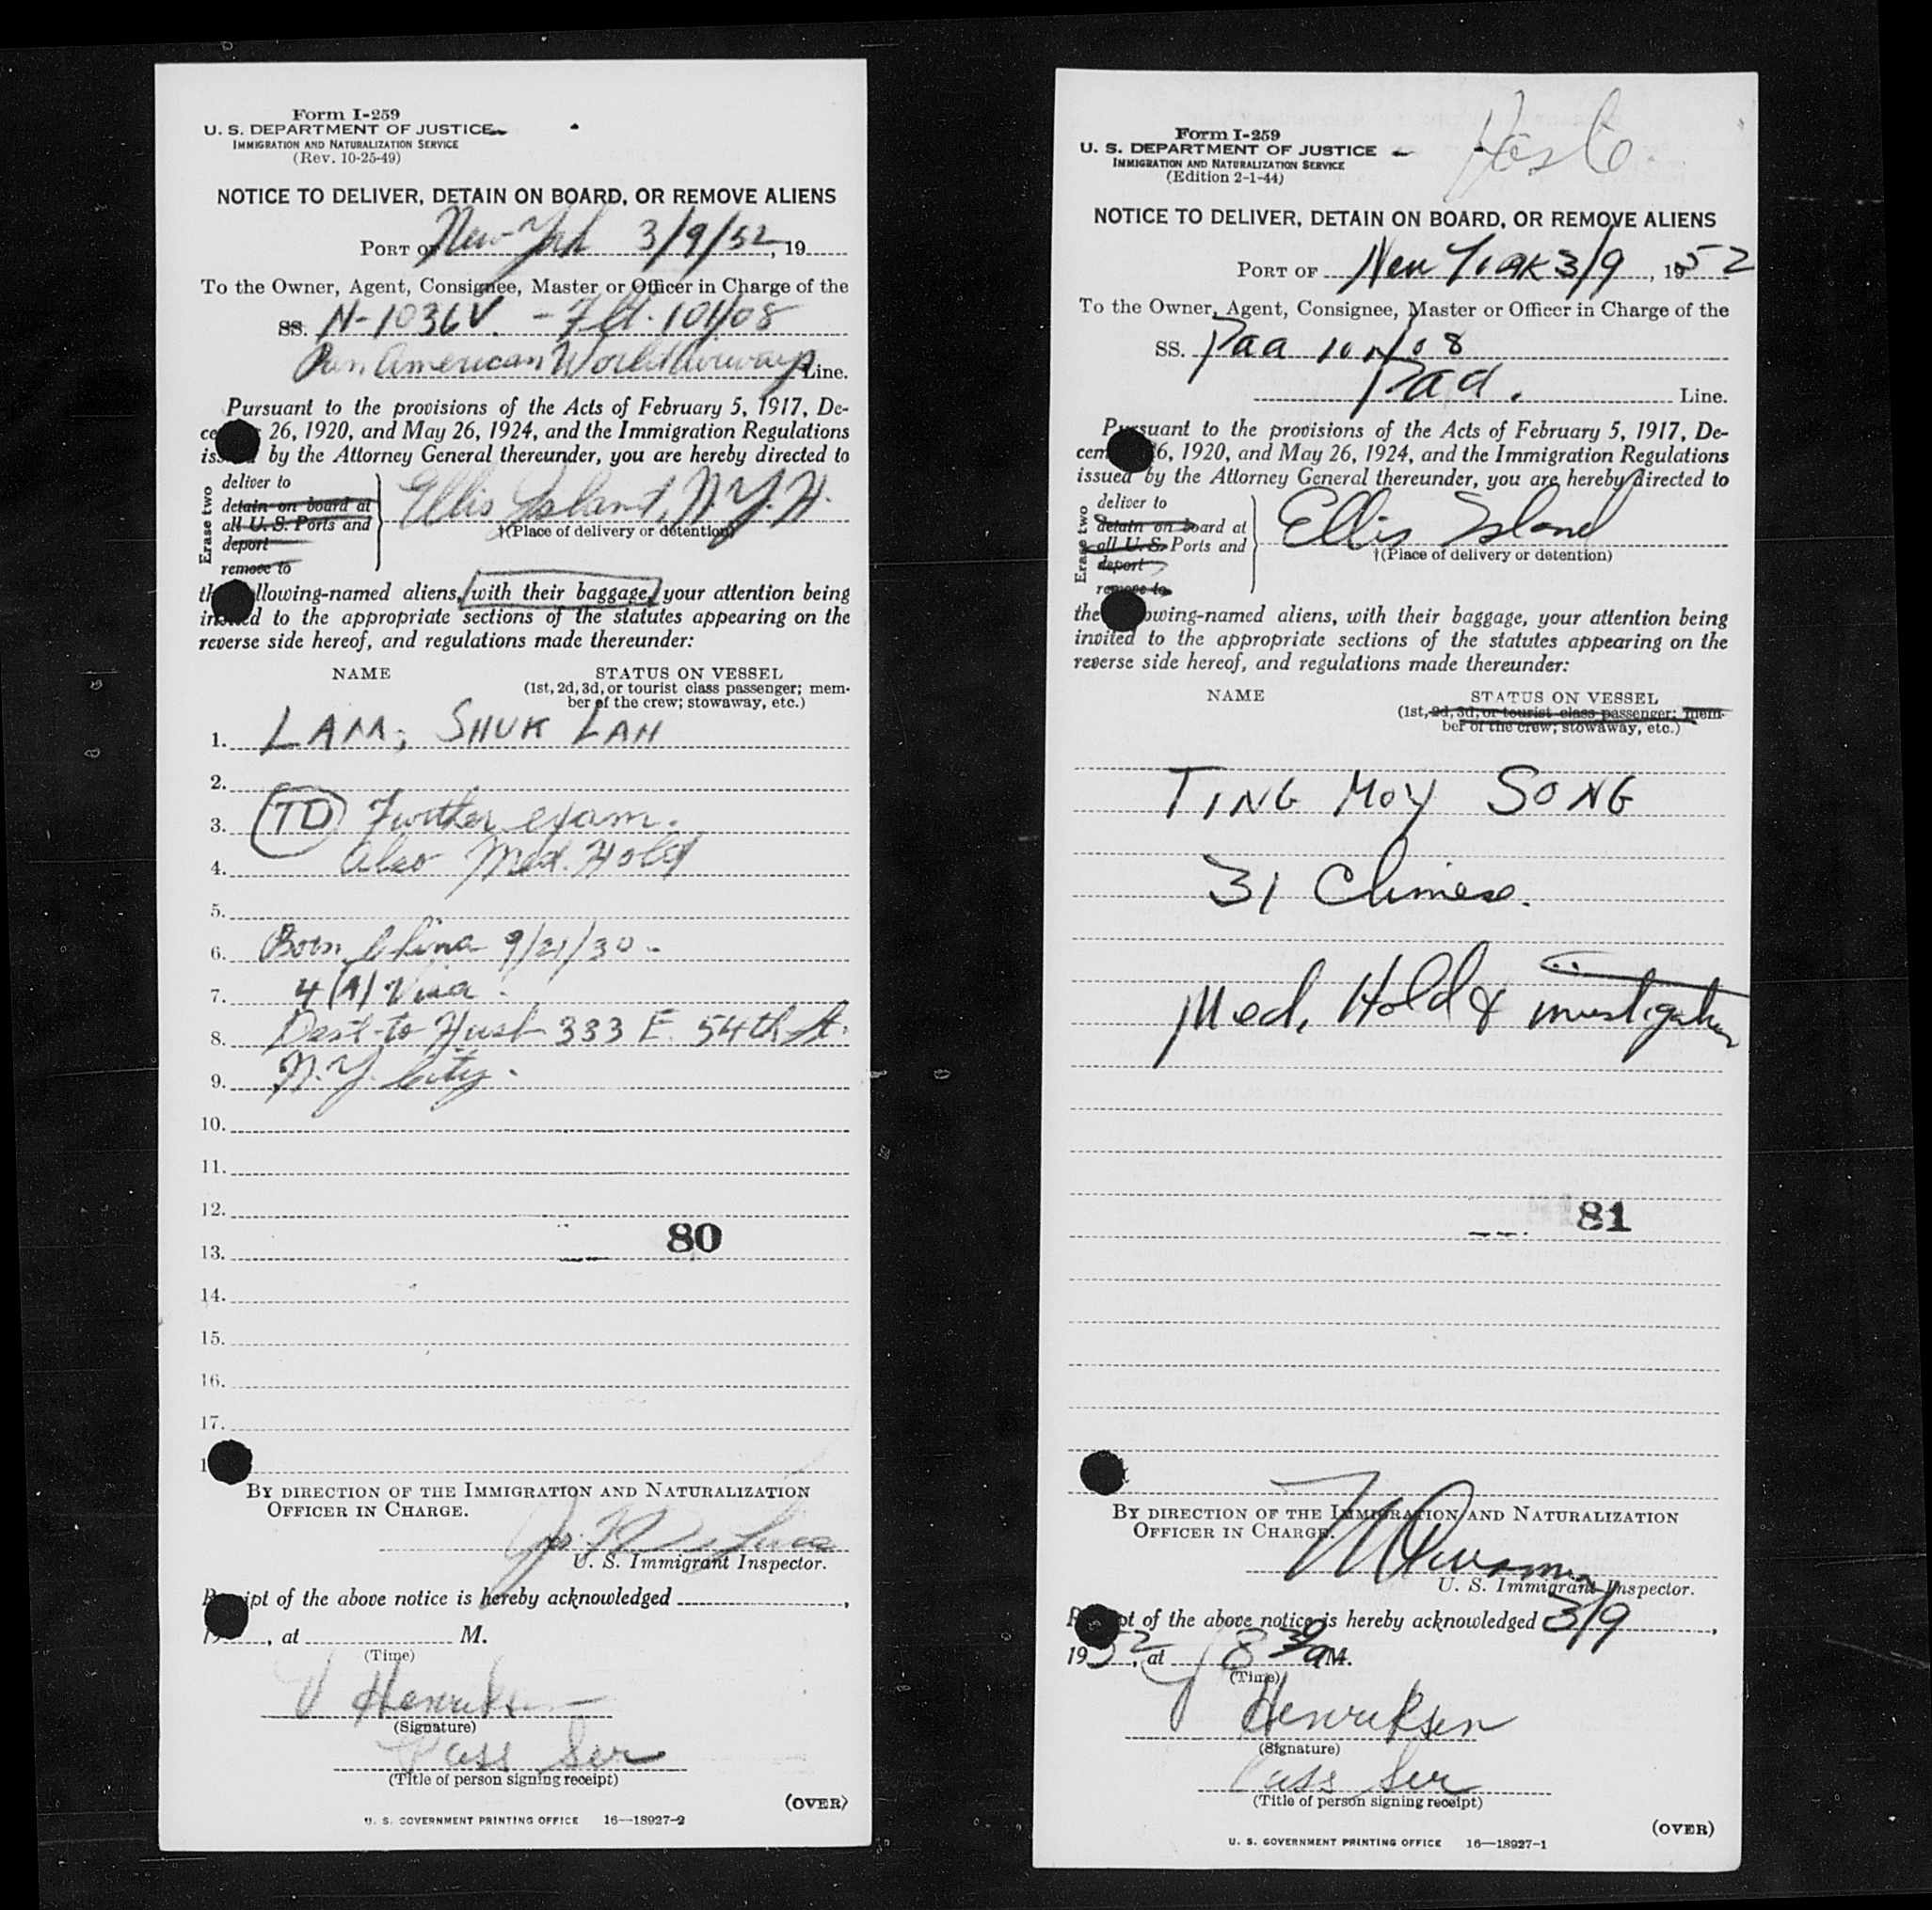 Form I-259
U. S. DEPARTMENT OF JUSTICE
IMMIGRATION AND NATURALIZATION SERVICE
(Rev. 10-25-49)
NOTICE TO DELIVER, DETAIN ON BOARD, OR REMOVE ALIENS
PORT OF New York 3/9/52, 19
To the Owner, Agent, Consignee, Master or Officer in Charge of the
SS. N-1036V. - Flt. 101/08
Pan American World Airways Line.
Pursuant to the provisions of the Acts of February 5, 1917, De-
26, 1920, and May 26, 1924, and the Immigration Regulations
by the Attorney General thereunder, you are hereby directed to
Erase two
deliver to
detain on board at
all U. S. Ports and
deport
remove to
Ellis Island, N.Y.H.
†(Place of delivery or detention)
llowing-named aliens, with their baggage, your attention being
invited to the appropriate sections of the statutes appearing on the
reverse side hereof, and regulations made thereunder:
NAME STATUS ON VESSEL
(1st, 2d, 3d, or tourist class passenger; mem-
ber of the crew; stowaway, etc.)
1. LAM, SHUK LAN
2.
3. TD Further exam.
4. Also Med. Hold
5.
6. Born China 9/21/30 -
7. 4(A) Visa.
8. Dest-to Husb 333 E. 54th St.
9. N.Y. City.
10.
11.
12.
80
13.
14.
15.
16.
17.
1
BY DIRECTION OF THE IMMIGRATION AND NATURALIZATION
OFFICER IN CHARGE.
U. S. Immigrant Inspector.
Receipt of the above notice is hereby acknowledged ,
, at M.
(Time)
Henriksen
(Signature)
Pass Ser
(Title of person signing receipt)
(OVER)
U. S. GOVERNMENT PRINTING OFFICE 16—18927-2
Form I-259
U. S. DEPARTMENT OF JUSTICE
IMMIGRATION AND NATURALIZATION SERVICE
(Edition 2-1-44)
NOTICE TO DELIVER, DETAIN ON BOARD, OR REMOVE ALIENS
PORT OF New York 3/9, 1952
To the Owner, Agent, Consignee, Master or Officer in Charge of the
SS. Paa 101/08
Paa. Line.
Pursuant to the provisions of the Acts of February 5, 1917, De-
cem 6, 1920, and May 26, 1924, and the Immigration Regulations
issued by the Attorney General thereunder, you are hereby directed to
Erase two
deliver to
detain on board at
all U. S. Ports and
deport
remove to
Ellis Island
†(Place of delivery or detention)
the owing-named aliens, with their baggage, your attention being
invited to the appropriate sections of the statutes appearing on the
reverse side hereof, and regulations made thereunder:
NAME STATUS ON VESSEL
(1st, 2d, 3d, or tourist class passenger; mem-
ber of the crew; stowaway, etc.)
TING MOY SONG
31 Chinese.
Med. Hold & investigation
81
BY DIRECTION OF THE IMMIGRATION AND NATURALIZATION
OFFICER IN CHARGE.
U. S. Immigrant Inspector.
Receipt of the above notice is hereby acknowledged 3/9,
1952, at 8 30 A M.
(Time)
Henriksen
(Signature)
Pass Ser
(Title of person signing receipt)
(OVER)
U. S. GOVERNMENT PRINTING OFFICE 16—18927-1